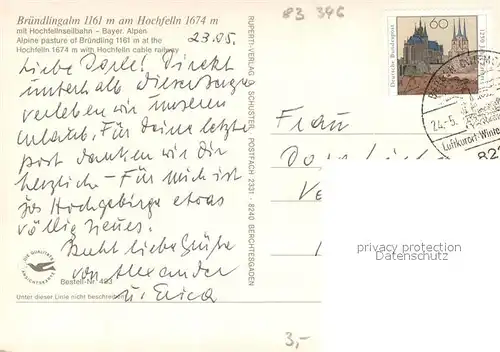 Bründlingalm 1161 m am Hochfelln 1674 m
mit Hochfellnseilbahn – Bayer. Alpen
Alpine pasture of Bründling 1161 m at the
Hochfelln 1674 m with Hochfelln cable railway
23.05.
83 346
Liebe Dorle! Direkt
unterhalb dieser
verleben wir unseren
Urlaub. Für Deine letzte
Post danken wir Dir
herzlich – Für mich ist
das Hochgebirge etwas
völlig neues.
Recht liebe Grüße
von Alexander
u. Erica
DIE QUALITÄTS
ANSICHTSKARTE
Bestell-Nr. 423
Unter dieser Linie nicht beschreiben!
RUPERTI-VERLAG G. SCHUSTER, POSTFACH 2331 - 8240 BERCHTESGADEN
Deutsche Bundespost
60
24.-5.
Luftkurort Winte
Frau
822
privacy protection
Datenschutz
3,-